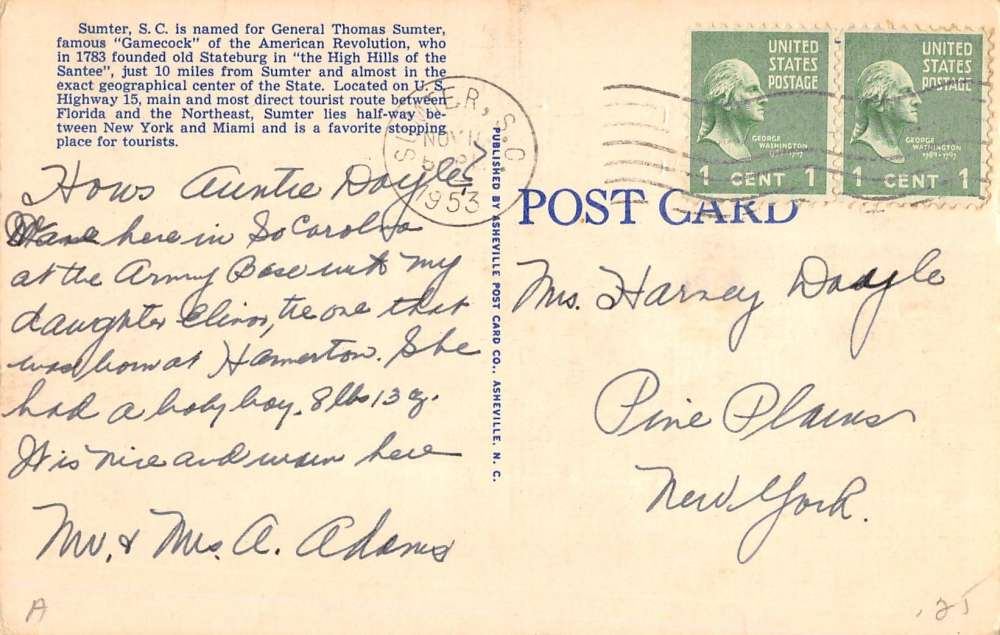 Sumter, S. C. is named for General Thomas Sumter,
famous "Gamecock" of the American Revolution, who
in 1783 founded old Stateburg in "the High Hills of the
Santee", just 10 miles from Sumter and almost in the
exact geographical center of the State. Located on U. S.
Highway 15, main and most direct tourist route between
Florida and the Northeast, Sumter lies half-way be-
tween New York and Miami and is a favorite stopping
place for tourists.
SUMTER, S.C.
NOV 11
1953
UNITED
STATES
POSTAGE
GEORGE
WASHINGTON
1789-1797
1 CENT 1
UNITED
STATES
POSTAGE
GEORGE
WASHINGTON
1789-1797
1 CENT 1
POST CARD
PUBLISHED BY ASHEVILLE POST CARD CO., ASHEVILLE, N. C.
Hows Auntie Doyle
We are here in So Carolina
at the Army Base with my
daughter Elinor, the one that
was born at Hamerton. She
had a baby boy. 8 lbs 13 oz.
It is nice and warm here
Mr. & Mrs. A. Adams
Mrs. Harney Doyle
Pine Plains
New York.
A
.21